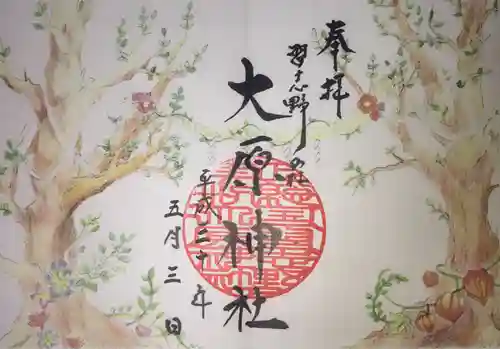 奉拝
習志野
大原神社
平成三十年
五月三日